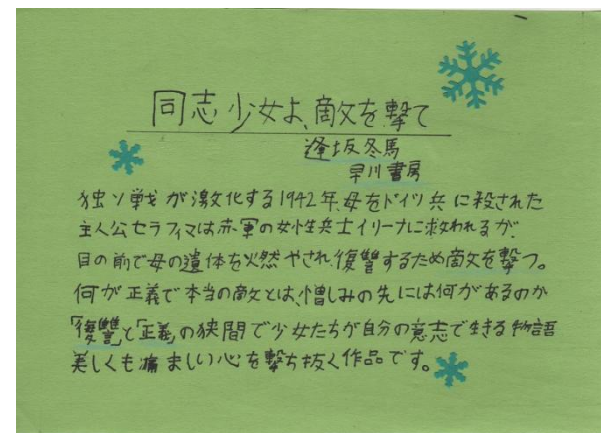 同志少女よ、敵を撃て
逢坂冬馬
早川書房
独ソ戦が激化する1942年、母をドイツ兵に殺された
主人公セラフィマは赤軍の女性兵士イリーナに救われるが、
目の前で母の遺体を燃やされ、復讐するため敵を撃つ。
何が正義で本当の敵とは、憎しみの先には何があるのか
「復讐」と「正義」の狭間で少女たちが自分の意志で生きる物語
美しくも痛ましい心を撃ち抜く作品です。